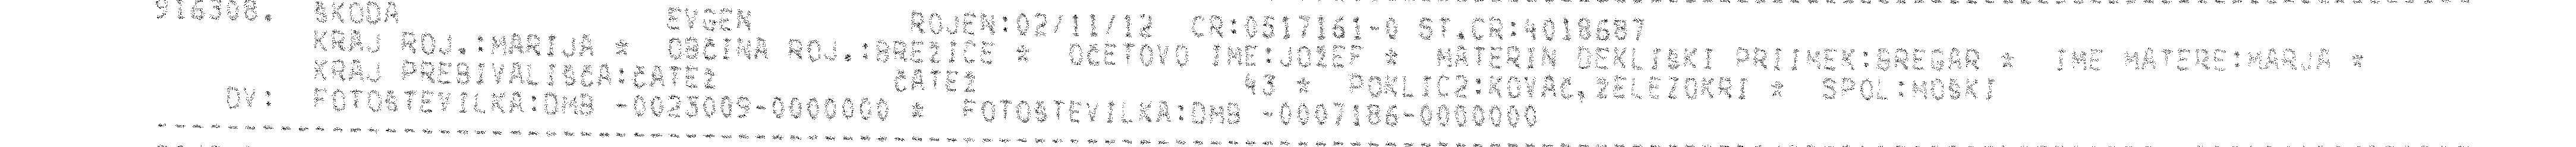 916308. ŠKODA EVGEN ROJEN:02/11/12 CR:0517161-0 ST.CR:4018687
KRAJ ROJ.:MARIJA * OBČINA ROJ.:BREŽICE * OČETOVO IME:JOŽEF * MATERIN DEKLIŠKI PRIIMEK:BREGAR * IME MATERE:MARJA *
KRAJ PREBIVALIŠČA:ČATEŽ ČATEŽ 43 * POKLIC2:KOVAČ,ŽELEZOKRI * SPOL:MOŠKI
OV: FOTOŠTEVILKA:DMB -0023009-0000000 * FOTOŠTEVILKA:DMB -0007186-0000000